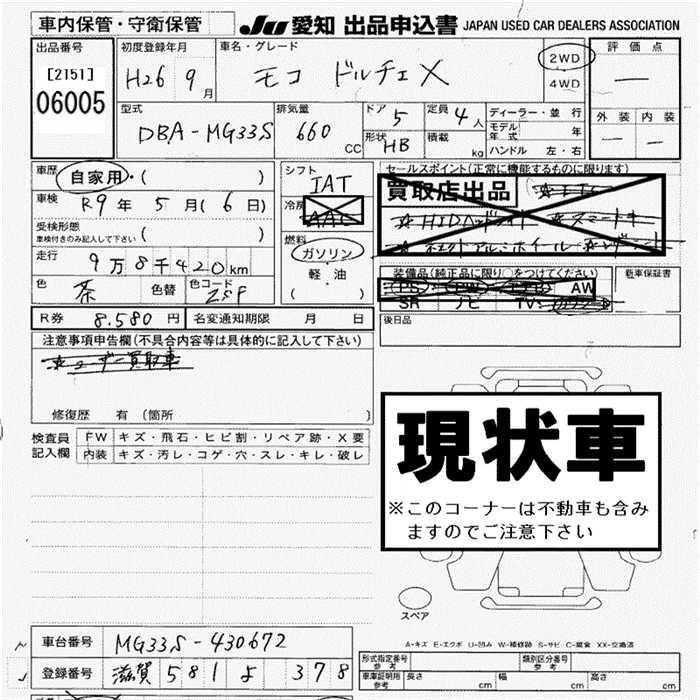 車内保管・守衛保管 JU 愛知 出品申込書 JAPAN USED CAR DEALERS ASSOCIATION
出品番号 初度登録年月 車名・グレード 2WD 評価点
[2151] H26 9月 モコ ドルチェX 4WD ―
06005 型式 排気量 ドア 5 定員 4人 ディーラー・並行 外装 内装
DBA-MG33S 660 CC 形状 HB 積載 kg モデル年式 年 ― ―
ハンドル 左・右
車歴 自家用・( ) シフト IAT セールスポイント(正常に機能するものに限ります)
車検 R9年 5月(6日) 冷房 AAC 買取店出品 ☆ETC
受検形態 車検付きのみ記入して下さい ( ) 燃料 ☆HIDヘッドライト ☆スマートキー
走行 9万8千420km ガソリン
色 茶 色替 色コード ZSF 軽・油 ( ) 装備品(純正品に限り〇をつけてください) 新車保証書
PS PW AW
SR ナビ TV
R券 8,580円 名変通知期限 月 日 後日品
注意事項申告欄(不具合内容等は具体的に記入して下さい)
☆ユーザー買取車
修復歴 有(箇所 )
検査員記入欄 FW キズ・飛石・ヒビ割・リペア跡・X要
内装 キズ・汚レ・コゲ・穴・スレ・キレ・破レ
現状車
※このコーナーは不動車も含み
ますのでご注意下さい
スペア
A-キズ E-エクボ U-凹み W-補修跡 S-サビ C-腐食 XX-交換済
車台番号 MG33S-430672
登録番号 滋賀 581 よ 378
型式指定番号 参考 類別区分番号 参考
車庫証明用 参考 長さ cm 幅 cm 高さ cm